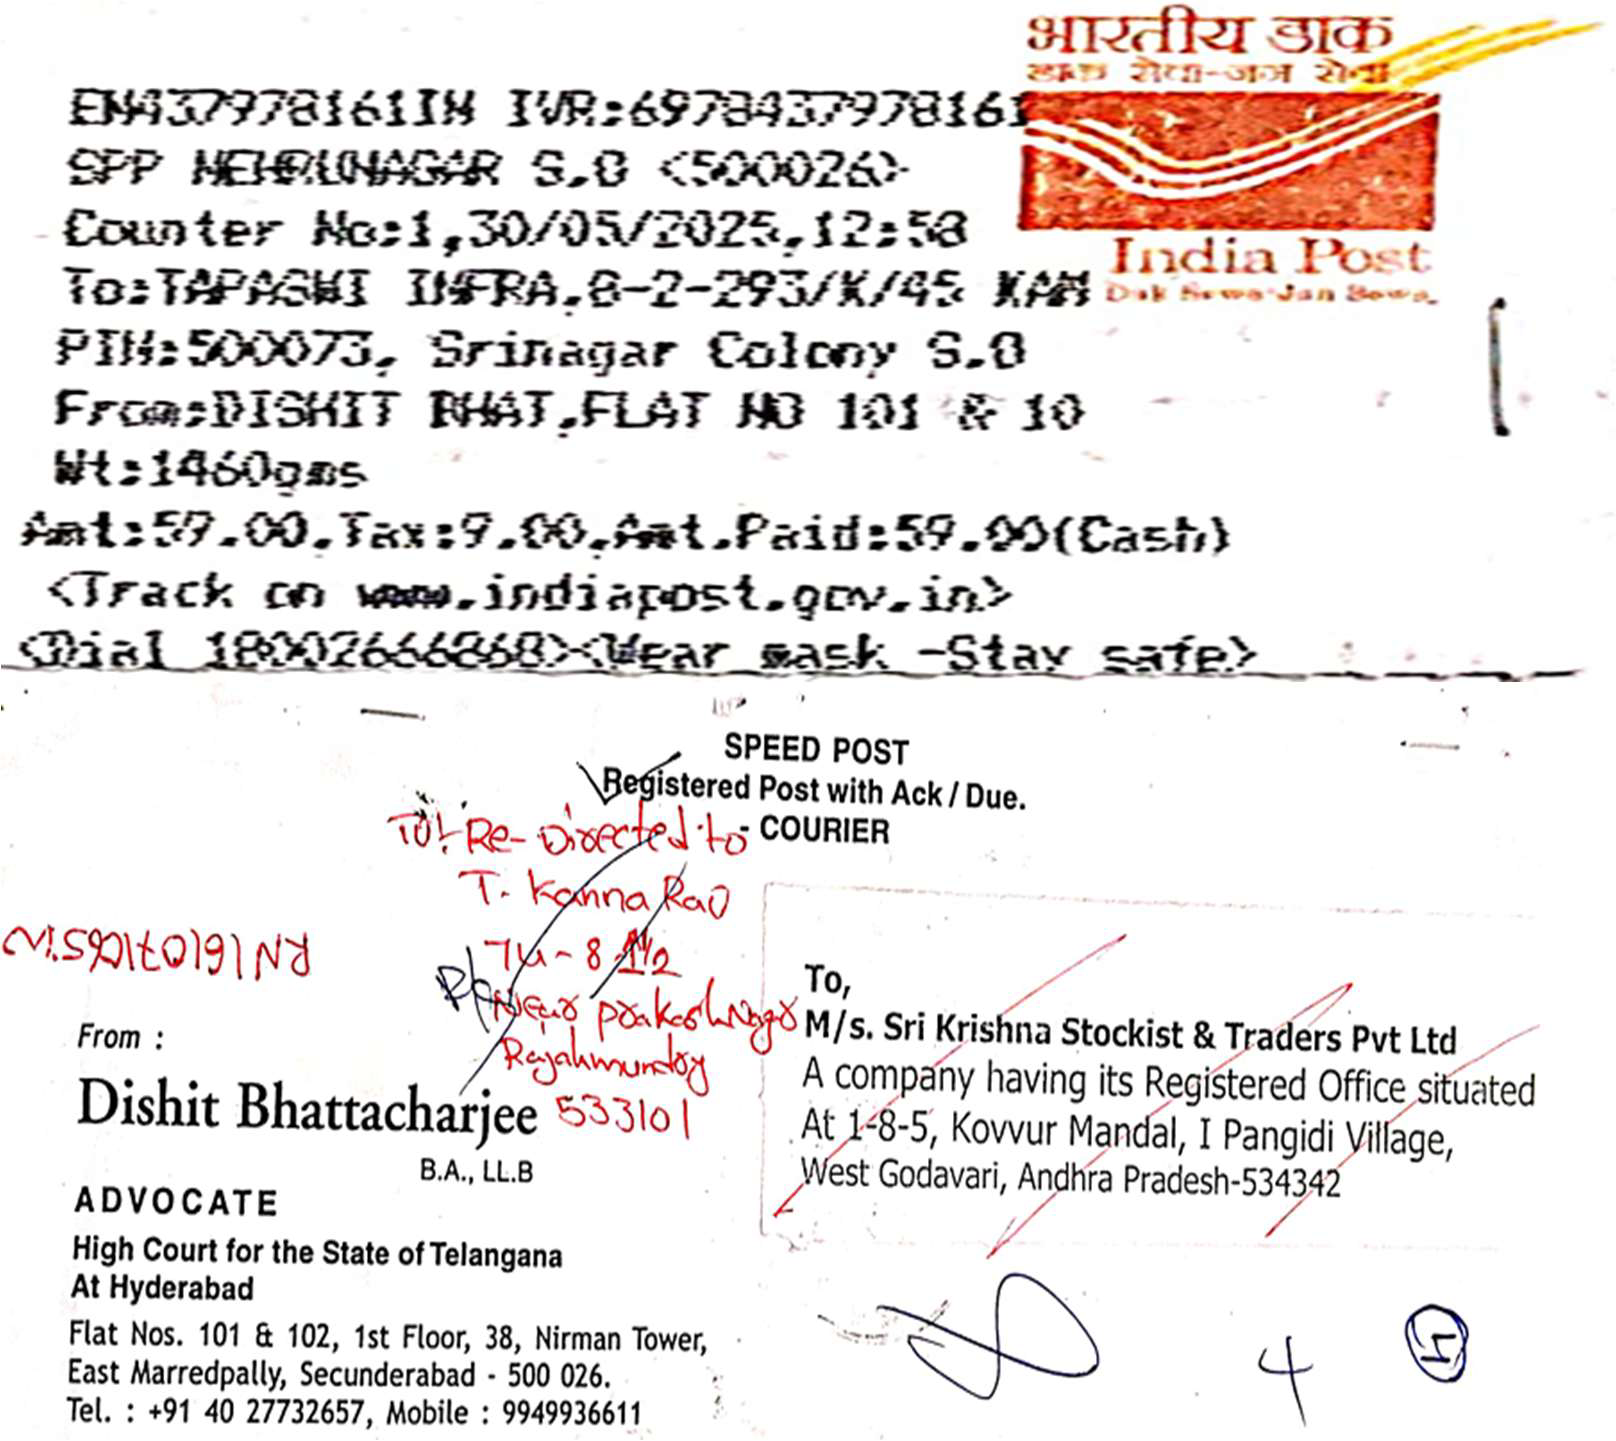 भारतीय डाक
डाक सेवा-जन सेवा
EN437978161IN IVR:6978437978161
SPP NEHRUNAGAR S.O <500026>
Counter No:1,30/05/2025,12:58
To:TAPASWI INFRA,8-2-293/K/45 KAM
India Post
Dak Sewa-Jan Sewa
PIN:500073, Srinagar Colony S.O
From:DISHIT BHAT,FLAT NO 101 & 10
Wt:1460gms
Amt:59.00,Tax:9.00,Amt.Paid:59.00(Cash)
<Track on www.indiapost.gov.in>
<Dial 18002666868><Wear mask -Stay safe>
SPEED POST
Registered Post with Ack / Due.
- COURIER
To:- Re-Directed to
T. Kanna Rao
74-8
Near Prakash Nagar
Rajahmundry
533101
From :
Dishit Bhattacharjee
B.A., LL.B
ADVOCATE
High Court for the State of Telangana
At Hyderabad
Flat Nos. 101 & 102, 1st Floor, 38, Nirman Tower,
East Marredpally, Secunderabad - 500 026.
Tel. : +91 40 27732657, Mobile : 9949936611
To,
M/s. Sri Krishna Stockist & Traders Pvt Ltd
A company having its Registered Office situated
At 1-8-5, Kovvur Mandal, I Pangidi Village,
West Godavari, Andhra Pradesh-534342
4